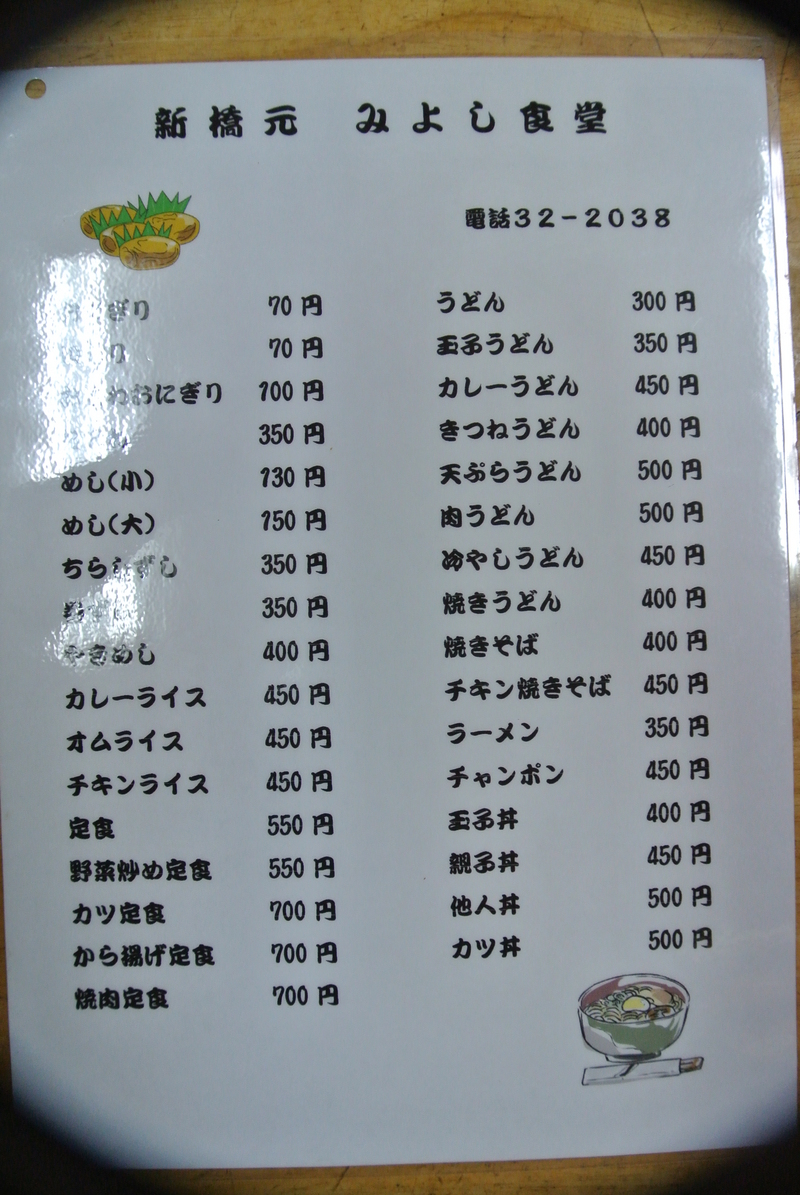 新橋元 みよし食堂
電話32-2038
ぎり 70円
り 70円
わおにぎり 100円
350円
めし(小) 130円
めし(大) 150円
ちらしずし 350円
350円
やきめし 400円
カレーライス 450円
オムライス 450円
チキンライス 450円
定食 550円
野菜炒め定食 550円
カツ定食 700円
から揚げ定食 700円
焼肉定食 700円
うどん 300円
玉子うどん 350円
カレーうどん 450円
きつねうどん 400円
天ぷらうどん 500円
肉うどん 500円
冷やしうどん 450円
焼きうどん 400円
焼きそば 400円
チキン焼きそば 450円
ラーメン 350円
チャンポン 450円
玉子丼 400円
親子丼 450円
他人丼 500円
カツ丼 500円